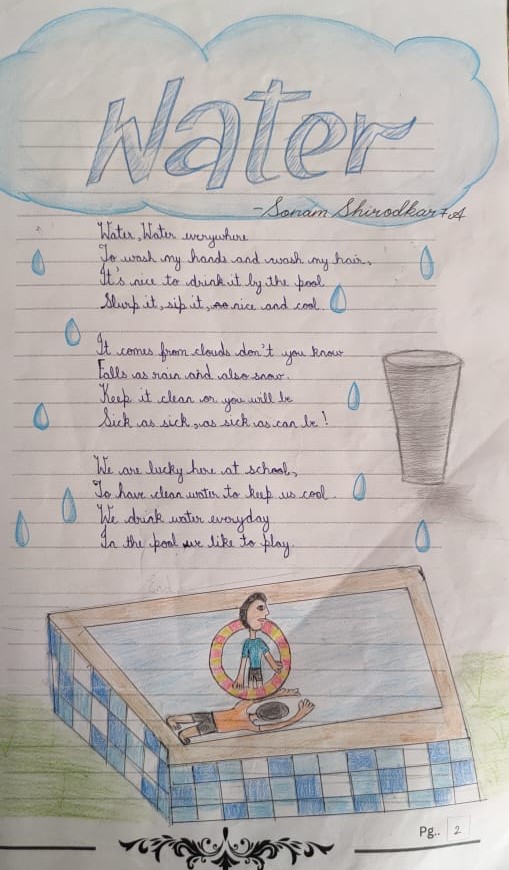 Water
-Sonam Shirodkar 7A
Water, Water everywhere
To wash my hands and wash my hair,
It's nice to drink it by the pool
Slurp it, sip it, so nice and cool.
It comes from clouds don't you know
Falls as rain and also snow.
Keep it clean or you will be
Sick as sick, as sick as can be!
We are lucky here at school,
To have clean water to keep us cool.
We drink water everyday
In the pool we like to play.
Pg.. 2